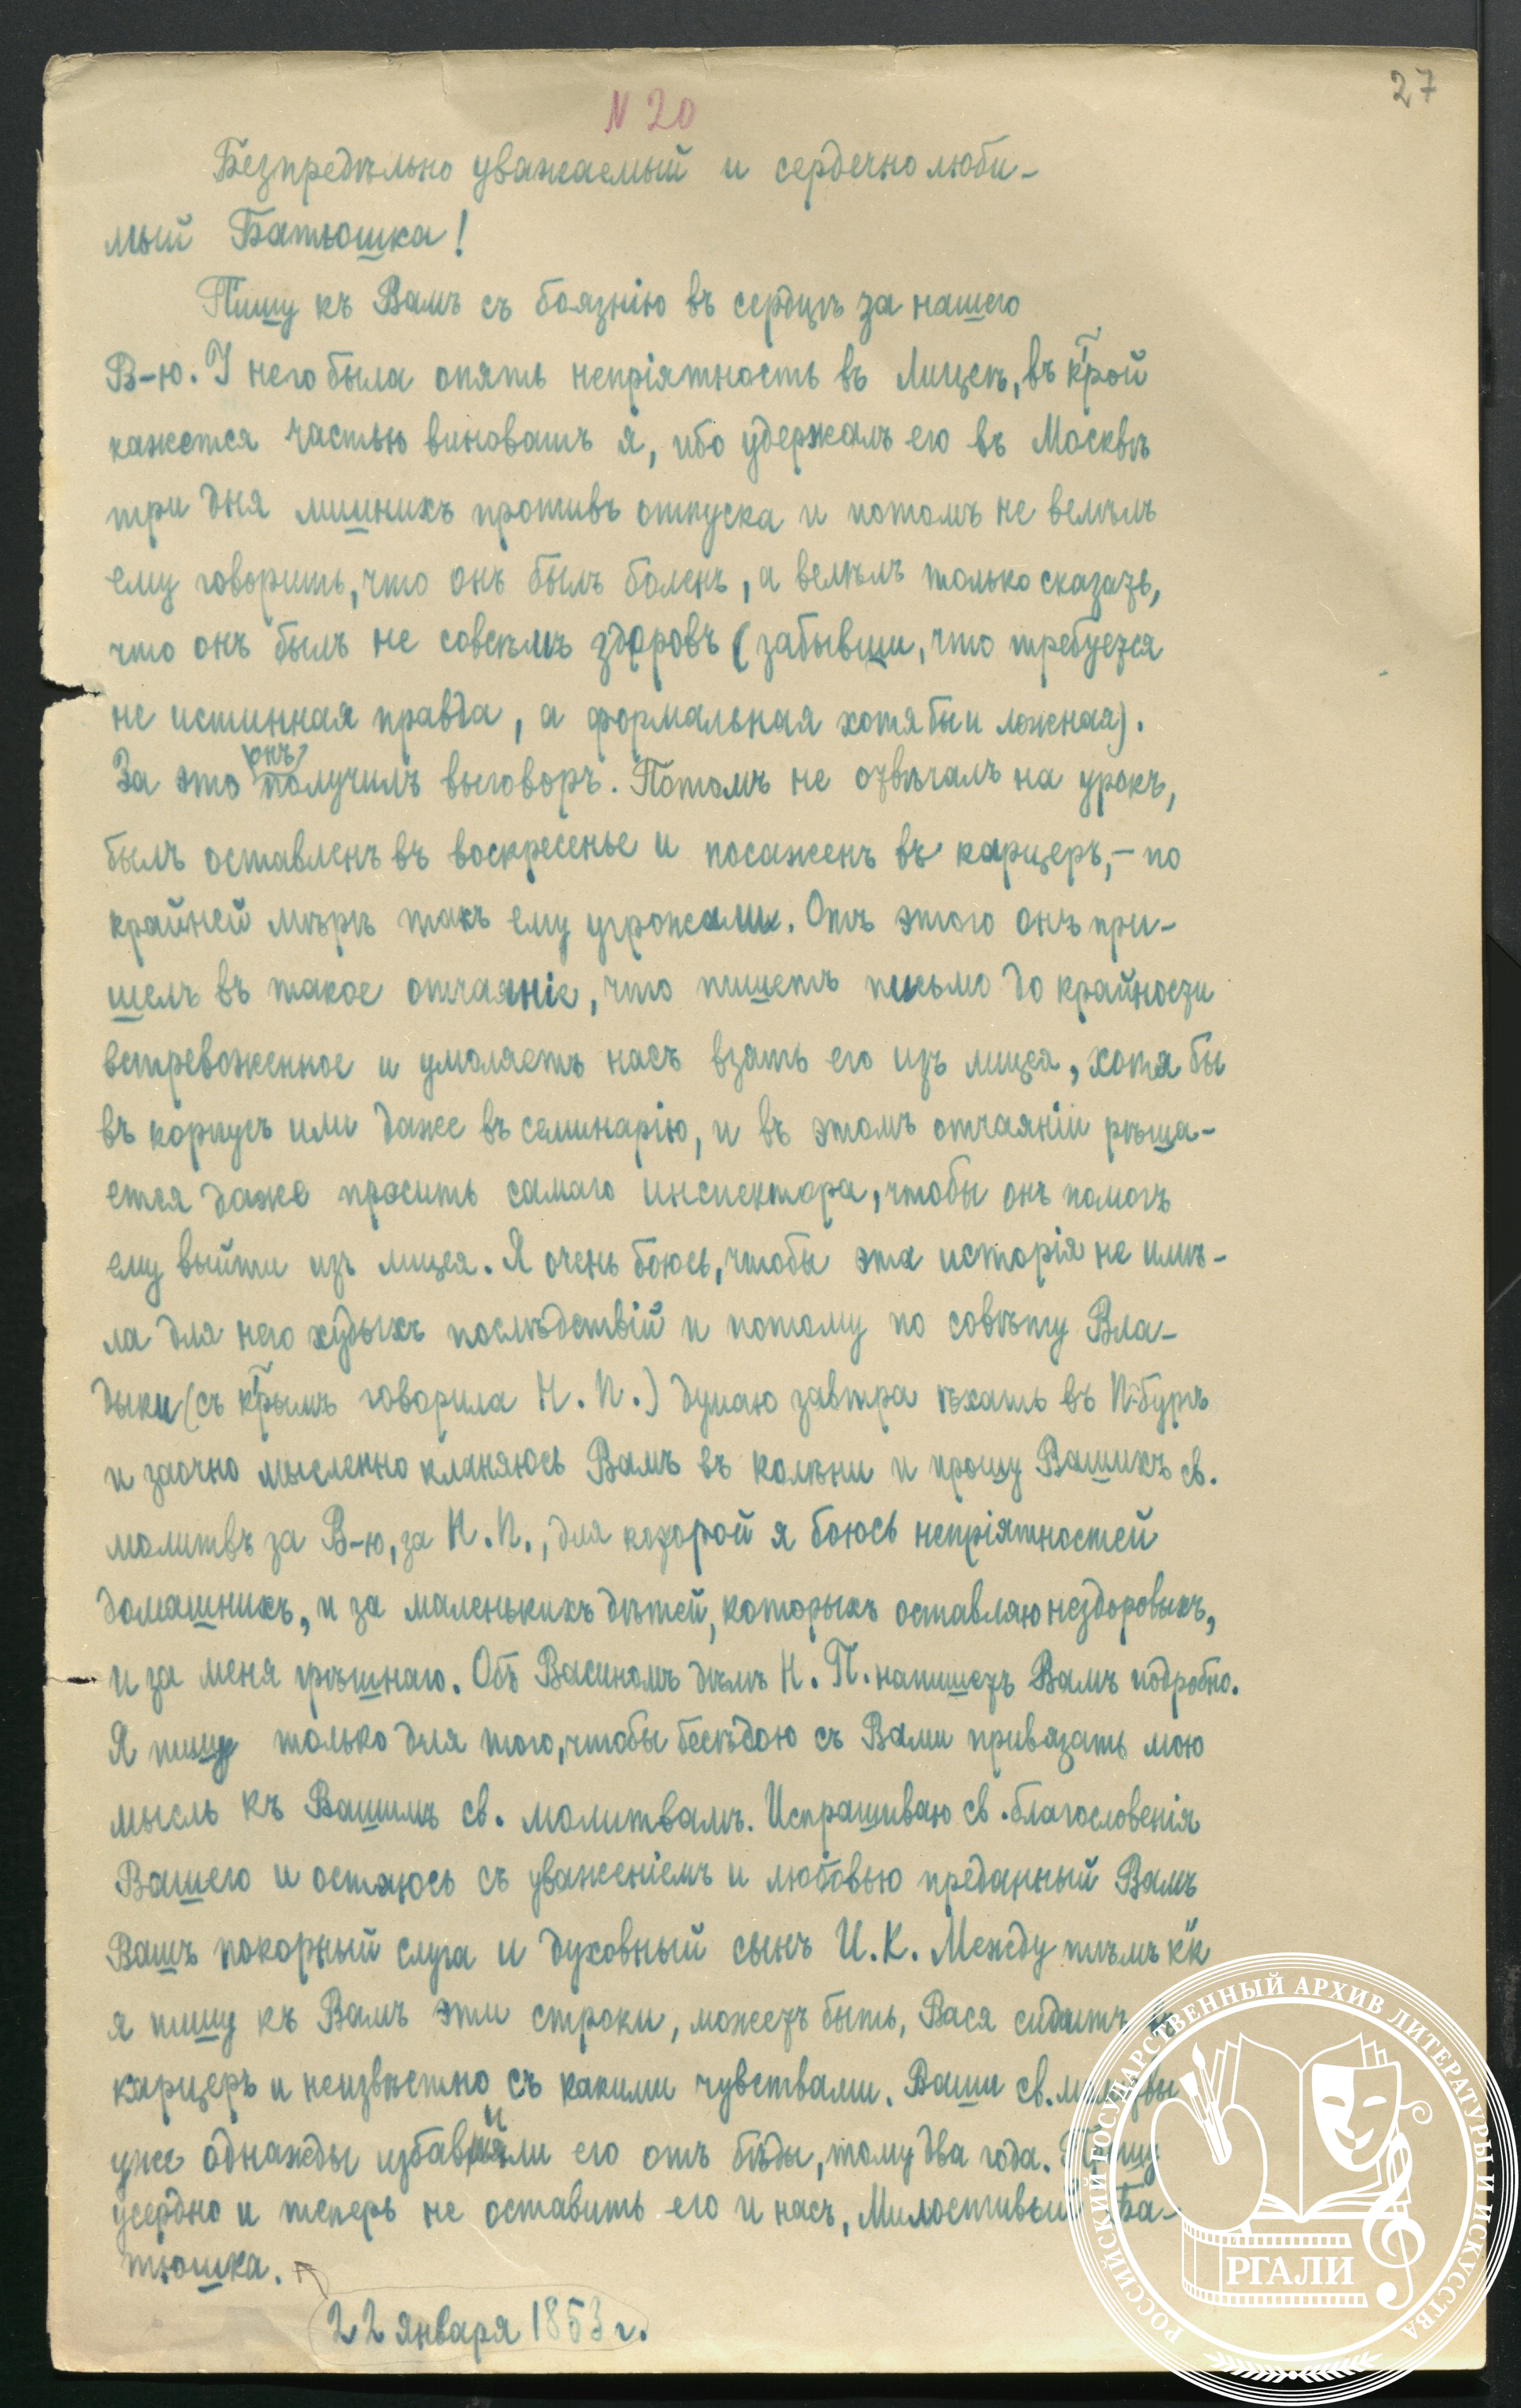 27
N 20
Безпредѣльно уважаемый и сердечно люби-
мый Батюшка!
Пишу къ Вамъ съ боязнію въ сердцѣ за нашего
В-ю. У него была опять непріятность въ Лицеѣ, въ к͠трой
кажется частью виноватъ я, ибо удержалъ его въ Москвѣ
три дня лишнихъ противъ отпуска и потомъ не велѣлъ
ему говорить, что онъ былъ боленъ, а велѣлъ только сказать,
что онъ былъ не совсѣмъ здоровъ (забывши, что требуется
не истинная правда, а формальная хотя бы и ложная).
За это онъ получилъ выговоръ. Потомъ не отвѣчалъ на урокъ,
былъ оставленъ въ воскресенье и посаженъ въ карцеръ, - по
крайней мѣрѣ такъ ему угрожали. Отъ этого онъ при-
шелъ въ такое отчаяніе, что пишетъ письмо до крайности
встревоженное и умоляетъ насъ взять его изъ лицея, хотя бы
въ корпусъ или даже въ семинарію, и въ этомъ отчаяніи рѣша-
ется даже просить самаго инспектора, чтобы онъ помогъ
ему выйти изъ лицея. Я очень боюсь, чтобы эта исторія не имѣ-
ла для него худыхъ послѣдствій и потому по совѣту Вла-
дыки (съ к͠трымъ говорила Н. П.) думаю завтра ѣхать въ П-бургъ
и заочно мысленно кланяюсь Вамъ въ колѣни и прошу Вашихъ св.
молитвъ за В-ю, за Н. П., для которой я боюсь непріятностей
домашнихъ, и за маленькихъ дѣтей, которыхъ оставляю нездоровыхъ,
и за меня грѣшнаго. Объ Васиномъ дѣлѣ Н. П. напишетъ Вамъ подробно.
Я пишу только для того, чтобы бесѣдою съ Вами привязать мою
мысль къ Вашимъ св. молитвамъ. Испрашиваю св. благословенія
Вашего и остаюсь съ уваженіемъ и любовью преданный Вамъ
Вашъ покорный слуга и духовный сынъ И. К. Между тѣмъ к"к
я пишу къ Вамъ эти строки, можетъ быть, Вася сидитъ въ
карцерѣ и неизвѣстно съ какими чувствами. Ваши св. молитвы
уже однажды избавили его отъ бѣды, тому два года. Прошу
усердно и теперь не оставить его и насъ, Милостивый Ба-
тюшка.
22 января 1853 г.
РОССИЙСКИЙ ГОСУДАРСТВЕННЫЙ АРХИВ ЛИТЕРАТУРЫ И ИСКУССТВА
РГАЛИ